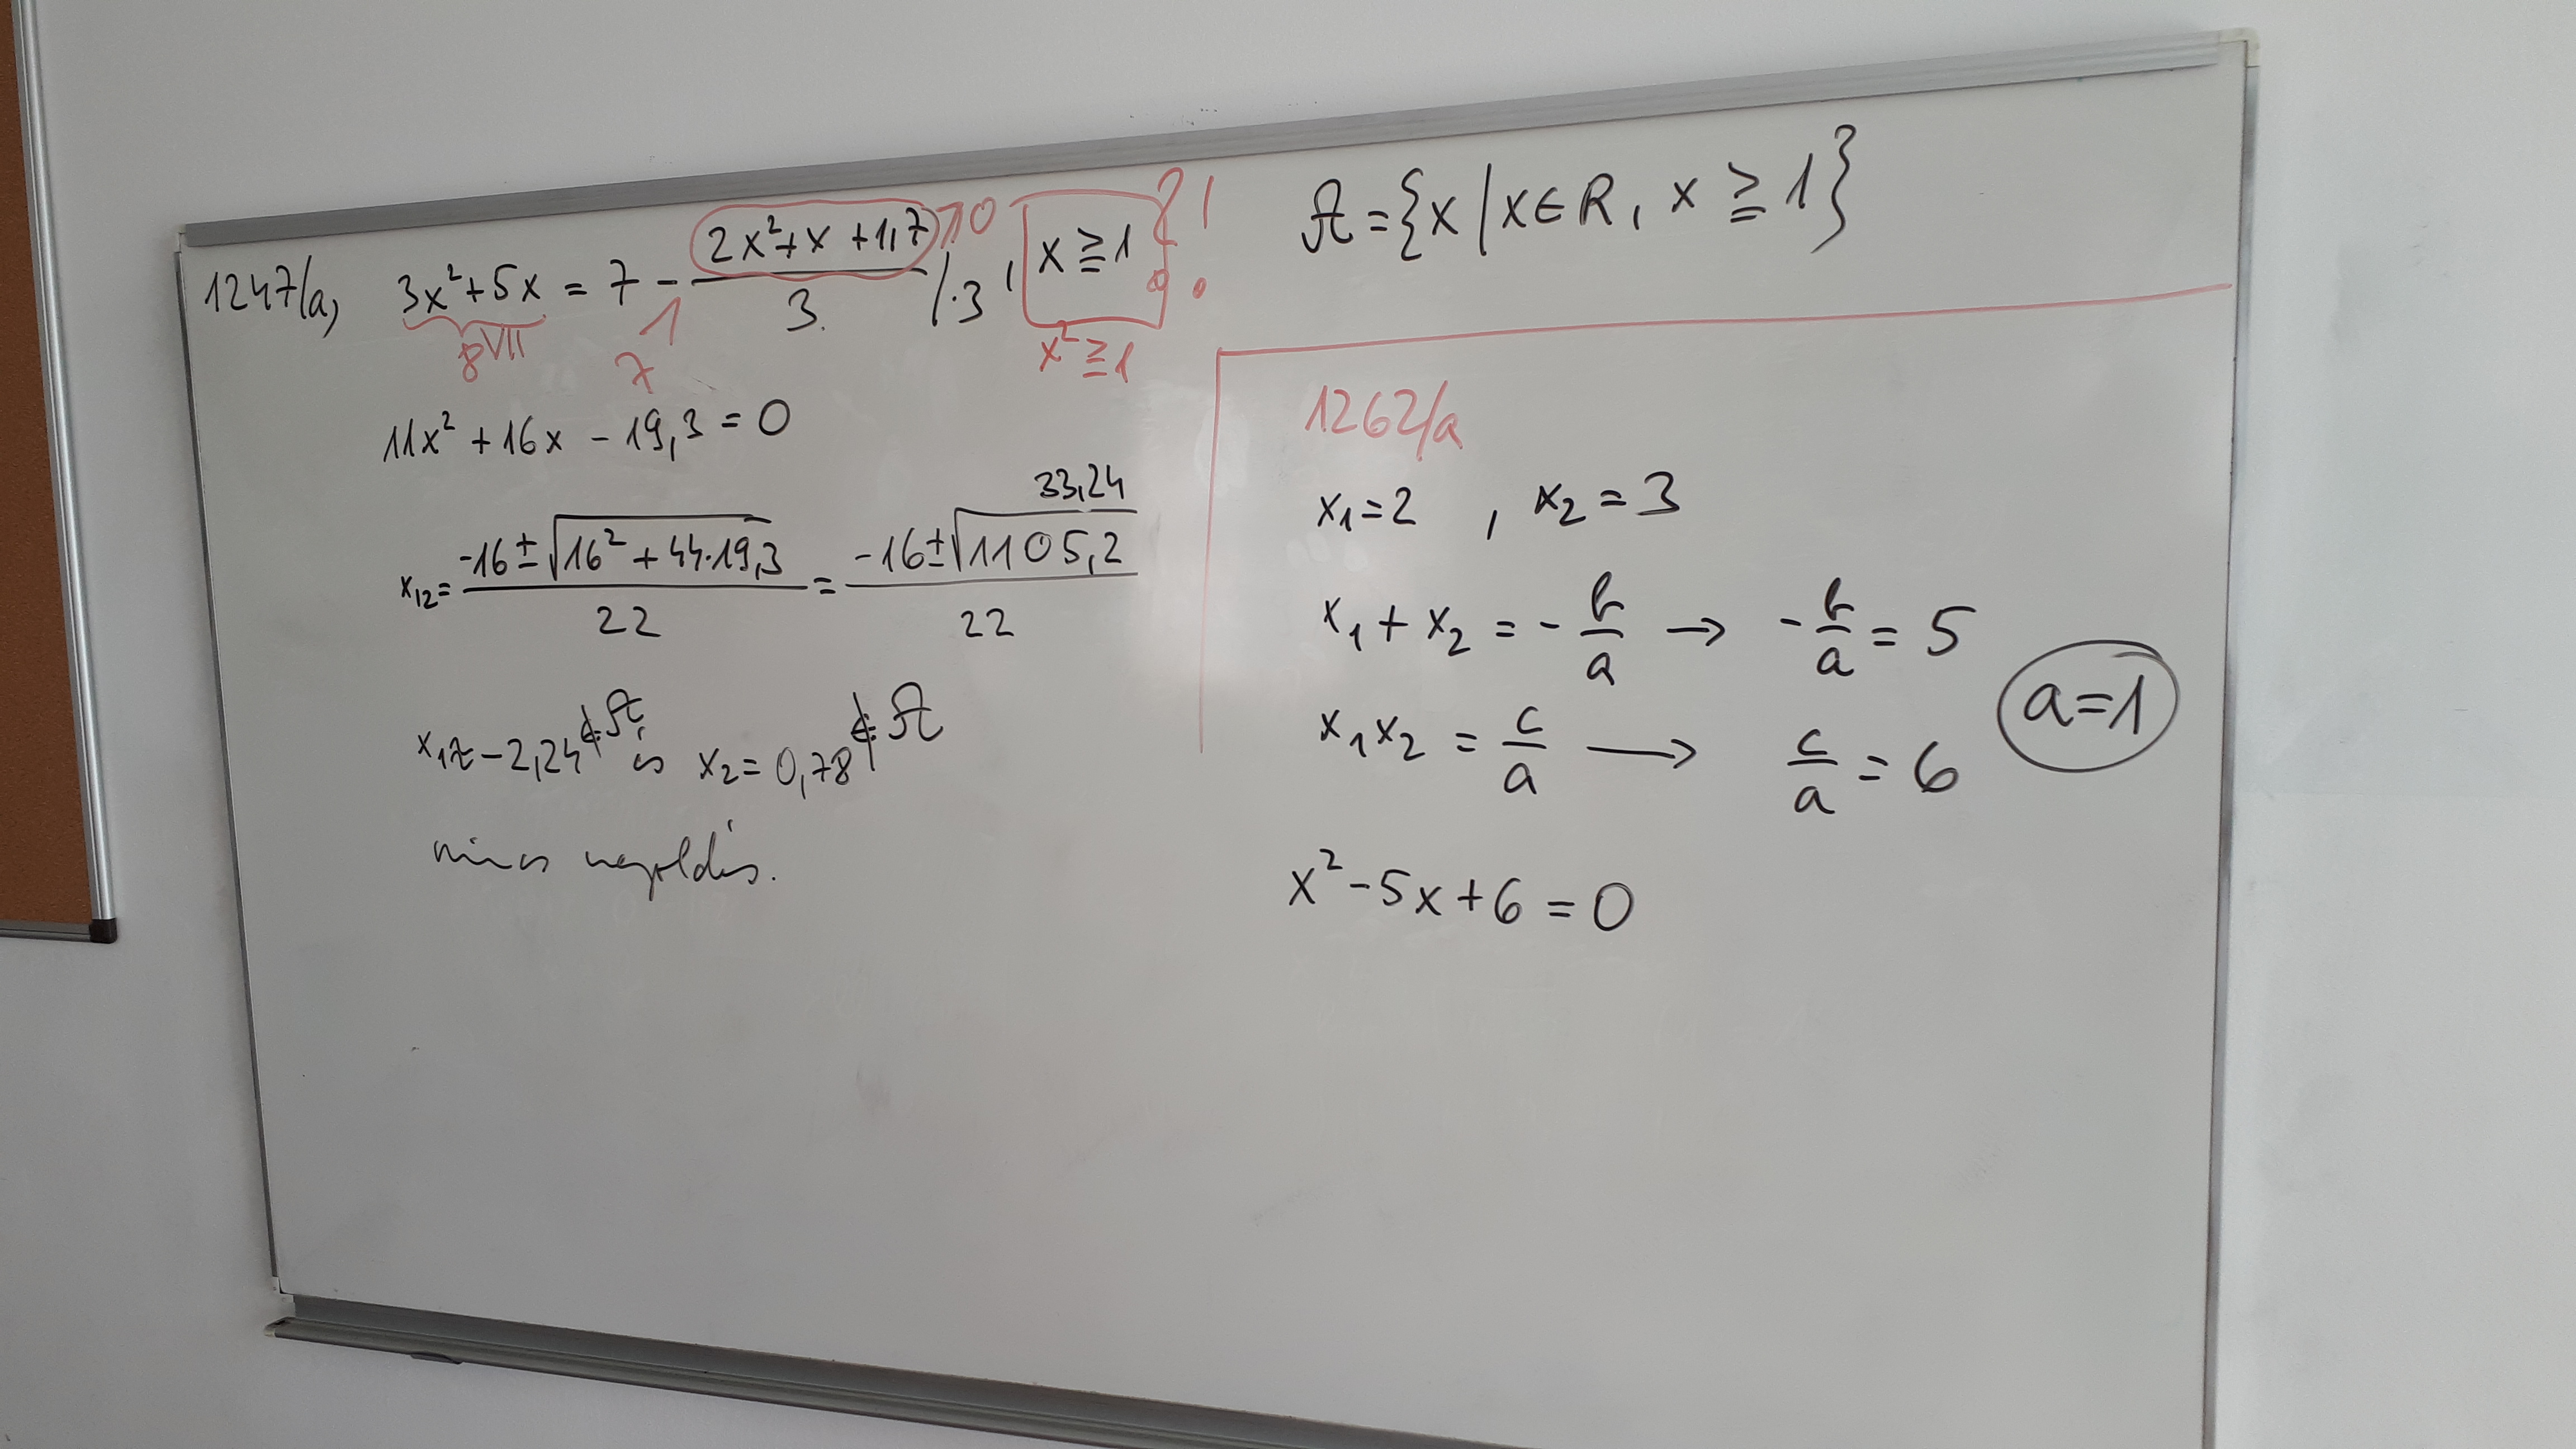 1247/a, 3x² + 5x = 7 - (2x² + x + 1,7)/3 /·3 , x ≧ 1
>0
?!
8 VII
1
7
x² ≧ 1
11x² + 16x - 19,3 = 0
33,24
x₁₂ = (-16 ± √(16² + 44·19,3))/22 = (-16 ± √1105,2)/22
x₁ ≈ -2,24 ∉ A és x₂ = 0,78 ∉ A
nincs megoldás.
A = {x | x ∈ R, x ≧ 1}
1262/a
x₁ = 2 , x₂ = 3
x₁ + x₂ = - b/a → - b/a = 5
a = 1
x₁x₂ = c/a → c/a = 6
x² - 5x + 6 = 0